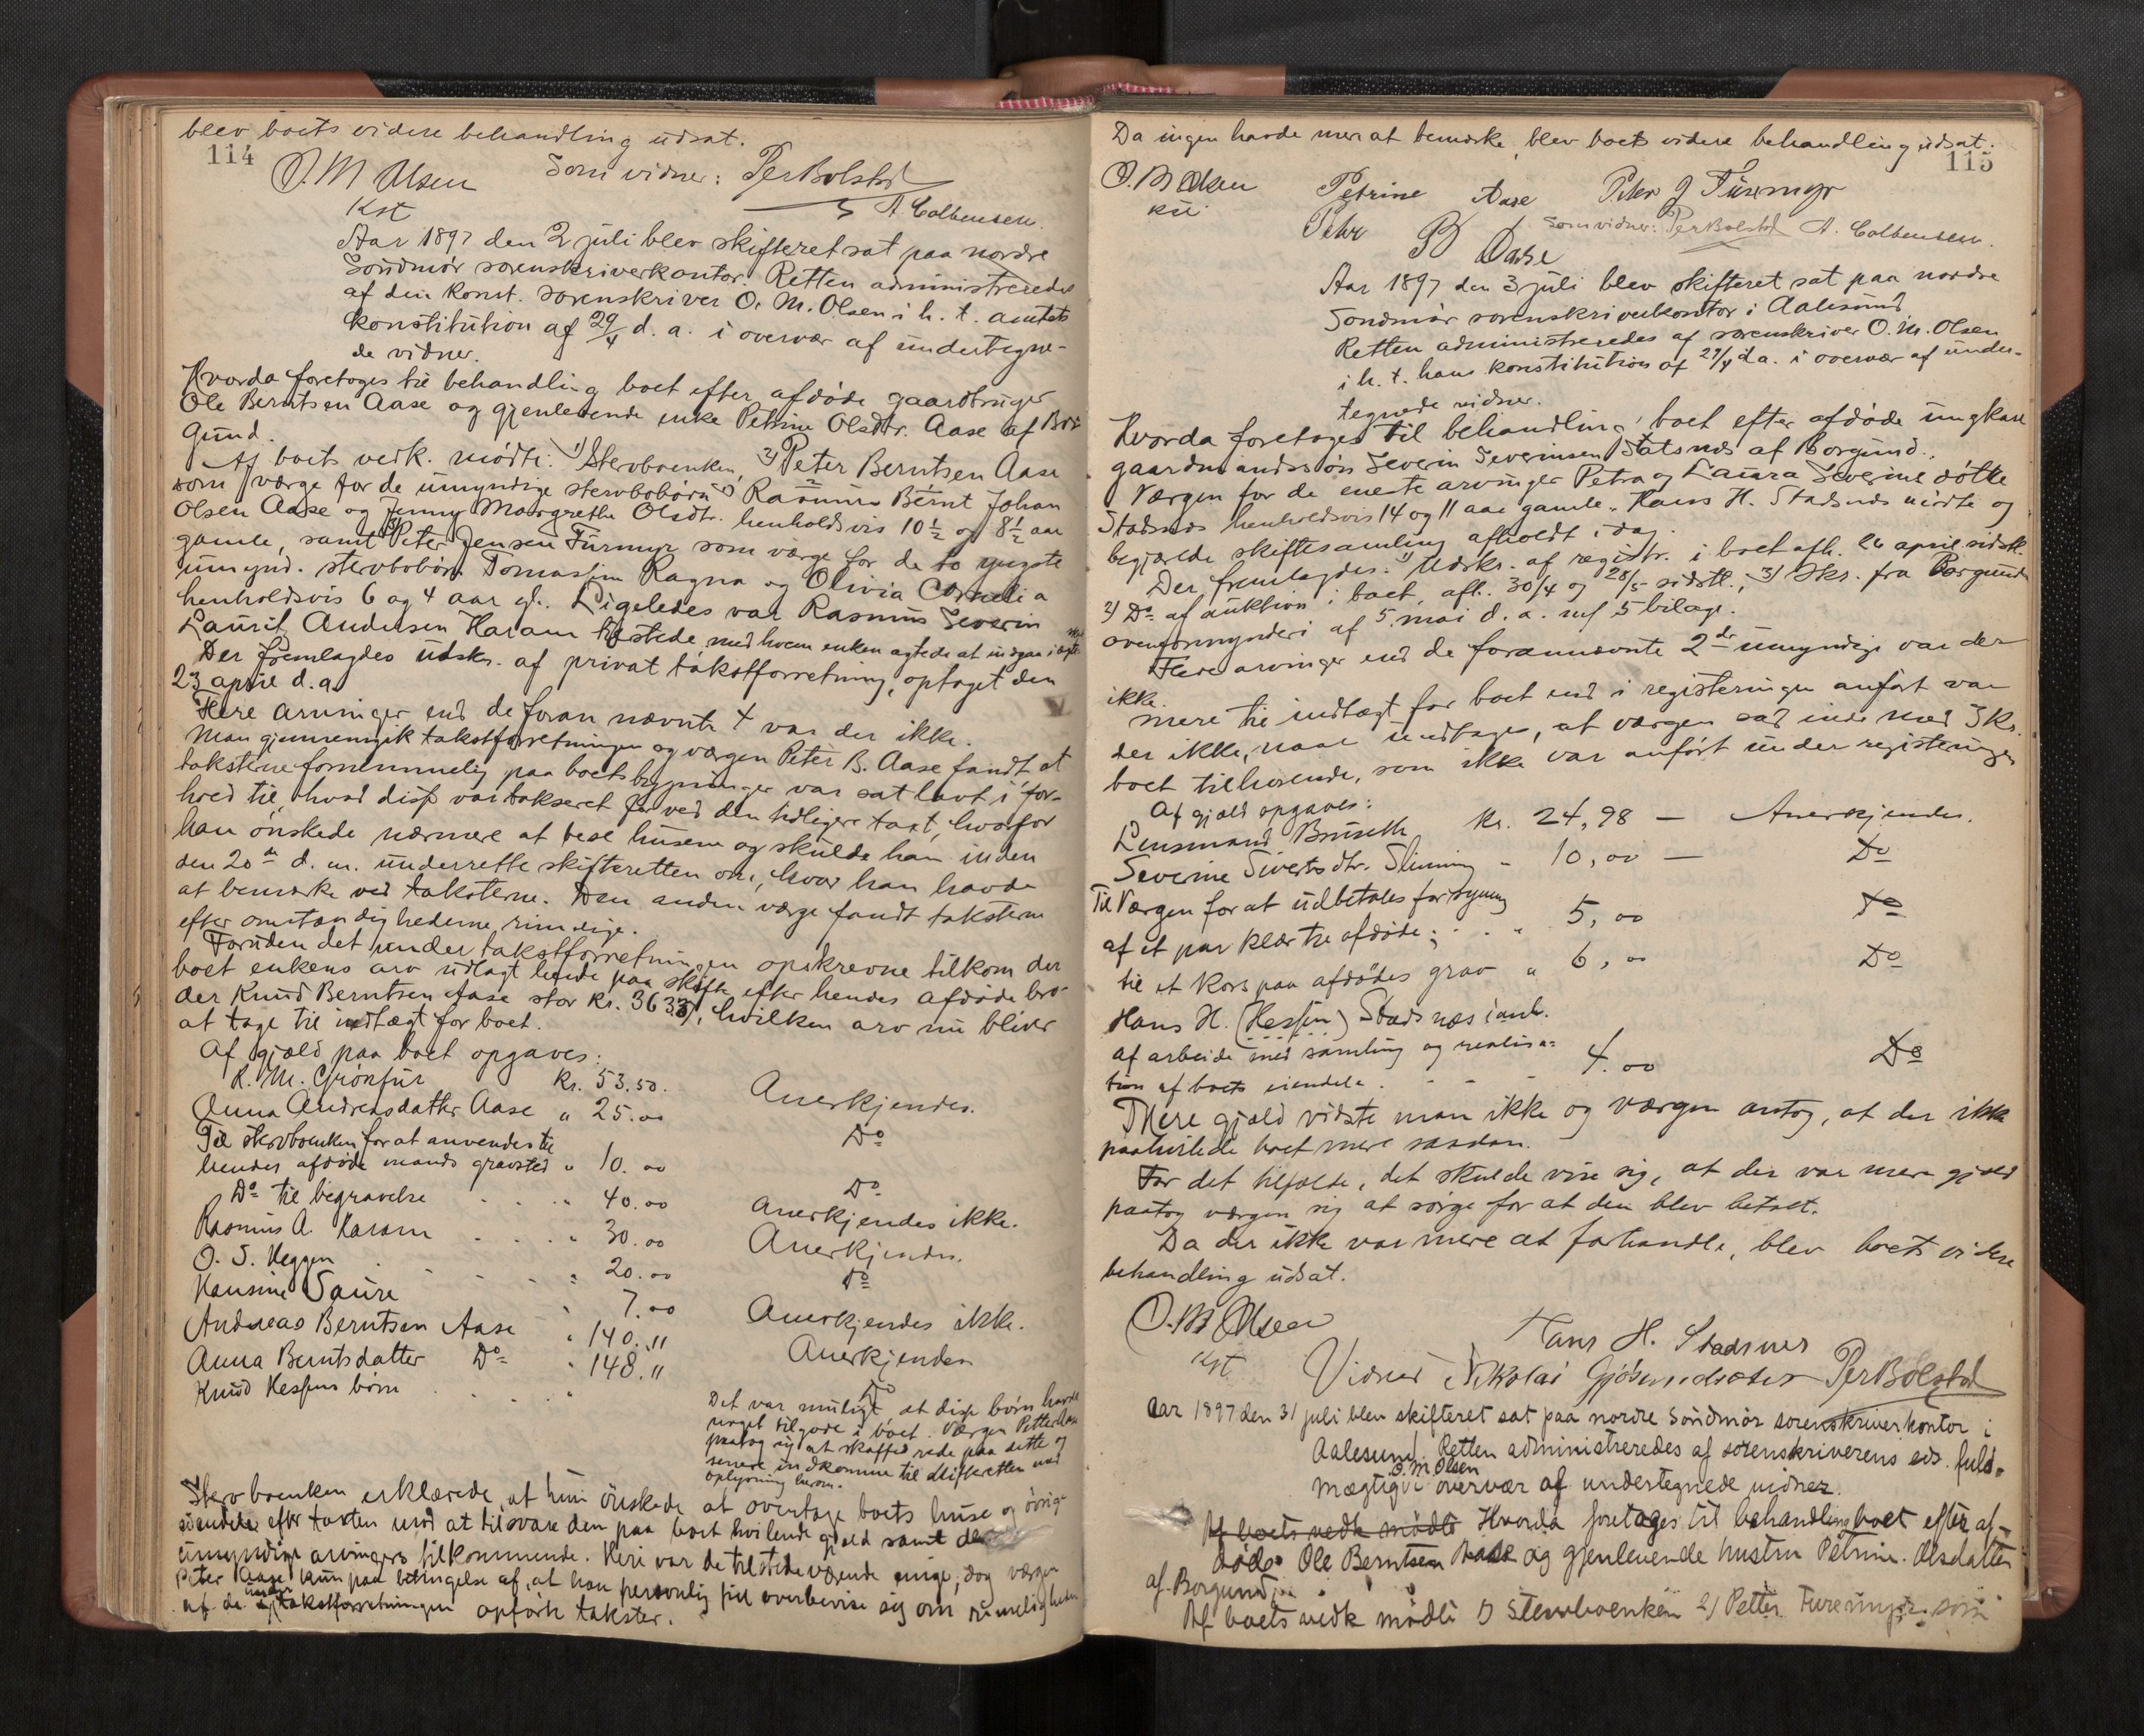 blev boets videre behandling udsat.
114
O. M Olsen Som vidner: Per Bolstad
Kst A. Colbensen.
Aar 1897 den 2 juli blev skifteret sat paa nordre
Søndmør sorenskriverkontor. Retten administreredes
af den konst. sorenskriver O. M. Olsen i h. t. amtets
konstitution af 29/4 d. a. i overvær af undertegne-
de vidner.
Hvorda foretoges til behandling boet efter afdøde gaardbruger
Ole Berntsen Aase og gjenlevende enke Petrine Olsdtr. Aase af Bor-
gund.
Af boets vedk. mødte: 1) Stervboenken, 2) Peter Berntsen Aase
som værge for de umyndige stervbobørn Rasmus Bernt Johan
Olsen Aase og Jenny Margrethe Olsdtr. henholdsvis 10 1/2 og 8 1/2 aar
gamle, samt 3) Peter Jensen Furmyr som værge for de to yngste
umynd. stervbobørn Tomasine Ragna og Olivia Cornelia
henholdsvis 6 og 4 aar gl. Ligeledes var Rasmus Severin
Laurits Andersen Haram tilstede, med hvem enken agtede at indgaa i
Der fremlagdes udskr. af privat takstforretning, optaget den
23 april d. a.
Flere arvinger end de foran nævnte 4 var der ikke.
Man gjennemgik takstforretningen og værgen Peter B. Aase fandt at
taksterne fornemmelig paa boets bygninger var sat lavt i for-
hold til, hvad disse var takseret for ved den tidligere taxt, hvorfor
han ønskede nærmere at bese husene og skulde han inden
den 20de d. m. underrette skifteretten om, hvor han havde
at bemærke ved taksterne. Den anden værge fandt taksterne
efter omstændighederne rimelige.
Foruden det under takstforretningen opskrevne tilkom der
boet enkens arv udlagt hende paa skifte efter hendes afdøde bro-
der Knud Berntsen Aase stor kr. 3633, hvilken arv nu bliver
at tage til indtægt for boet.
Af gjæld paa boet opgaves:
R. M. Grønfur kr. 53.50. Anerkjendes.
Anna Andreasdatter Aase " 25.00 Do
Til stervboenken for at anvendes til
hendes afdøde mands gravsted " 10.00 Do
Do til begravelse " 40.00 Anerkjendes ikke.
Rasmus A. Haram " 30.00 Anerkjendes.
O. S. Heggen " 20.00 Do
Hansine Saure " 7.00 Anerkjendes ikke.
Andreas Berntsen Aase " 140." Anerkjendes
Anna Berntsdatter Do " 148." Do
Knud Hessens børn
Det var muligt at disse børn havde
noget tilgode i boet. Værgen Petter Aase
paatog sig at skaffe rede paa dette og
senere indkomme til skifteretten med
oplysning herom.
Stervboenken erklærede, at hun ønskede at overtage boets huse og øvrige
eiendele efter taxten mod at tilsvare den paa boet hvilende gjæld samt de
umyndige arvingers tilkommende. Heri var de tilstedeværende enige, dog værgen
Peter Aase kun paa betingelse af, at han personlig fik overbevise sig om rimeligheden
af de under takstforretningen opførte takster.
Da ingen havde mer at bemærke, blev boets videre behandling udsat.
115
O. M Olsen Petrine Aase Peter J Furemyr
kst Peter B Aase Som vidner: Per Bolstad A. Colbensen.
Aar 1897 den 3 juli blev skifteret sat paa nordre
Søndmør sorenskriverkontor i Aalesund
Retten administreredes af sorenskriver O. M. Olsen
i h. t. hans konstitution af 29/4 d a. i overvær af under-
tegnede vidner.
Hvorda foretoges til behandling boet efter afdøde ungkar
gaardmandssøn Severin Severinsen Statsnæs af Borgund.
Værgen for de eneste arvinger Petra og Laura Severine døttre
Stadsnæs henholdsvis 14 og 11 aar gamle, Hans H. Stadsnæs mødte og
begjærede skiftesamling afholdt i dag.
Der fremlagdes: 1) Udskr. af registr. i boet afh. 26 april sidstl.
2) Do af auktion i boet, afh. 30/4 og 28/5 sidstl.; 3) Skr. fra Borgunds
overformynderi af 5 mai d. a. m/ 5 bilage.
Flere arvinger end de forannævnte 2de umyndige var der
ikke.
mere til indtægt for boet end i registeringen anført var
der ikke, naar undtages, at værgen sad inde med 3 kr.
boet tilhørende, som ikke var anført under registeringen
Af gjæld opgaves:
Lensmand Bruseth kr. 24,98 — Anerkjendes.
Severine Sivertsdtr. Slinning " 10,00 — Do
Til Værgen for at udbetales for syning
af et par klær til afdøde " 5,00 Do
til et kors paa afdødes grav " 6,00 Do
Hans H. (Hessen) Stadsnæs i anl.
af arbeide med samling og realisa-
tion af boets eiendele 4.00 Do
Mere gjæld vidste man ikke og værgen antog, at der ikke
paahvilede boet mere saadan.
For det tilfælde, det skulde vise sig, at der var mere gjæld
paatog værgen sig at sørge for at den blev betalt.
Da der ikke var mere at forhandle, blev boets videre
behandling udsat.
O. M Olsen Hans H. Stadsnes
kst Vidner Nikolai Gjøsundsæter Per Bolstad
Aar 1897 den 31 juli blev skifteret sat paa nordre Søndmør sorenskriverkontor i
Aalesund. Retten administreredes af sorenskriverens eds. fuld-
mægtig O. M Olsen i overvær af undertegnede vidner.
Af boets vedk mødte Hvorda foretages til behandling boet efter af-
døde Ole Berntsen Aase og gjenlevende hustru Petrine Olsdatter
af Borgund.
Af boets vedk mødte 1) Stervboenken 2) Petter Furemyr som